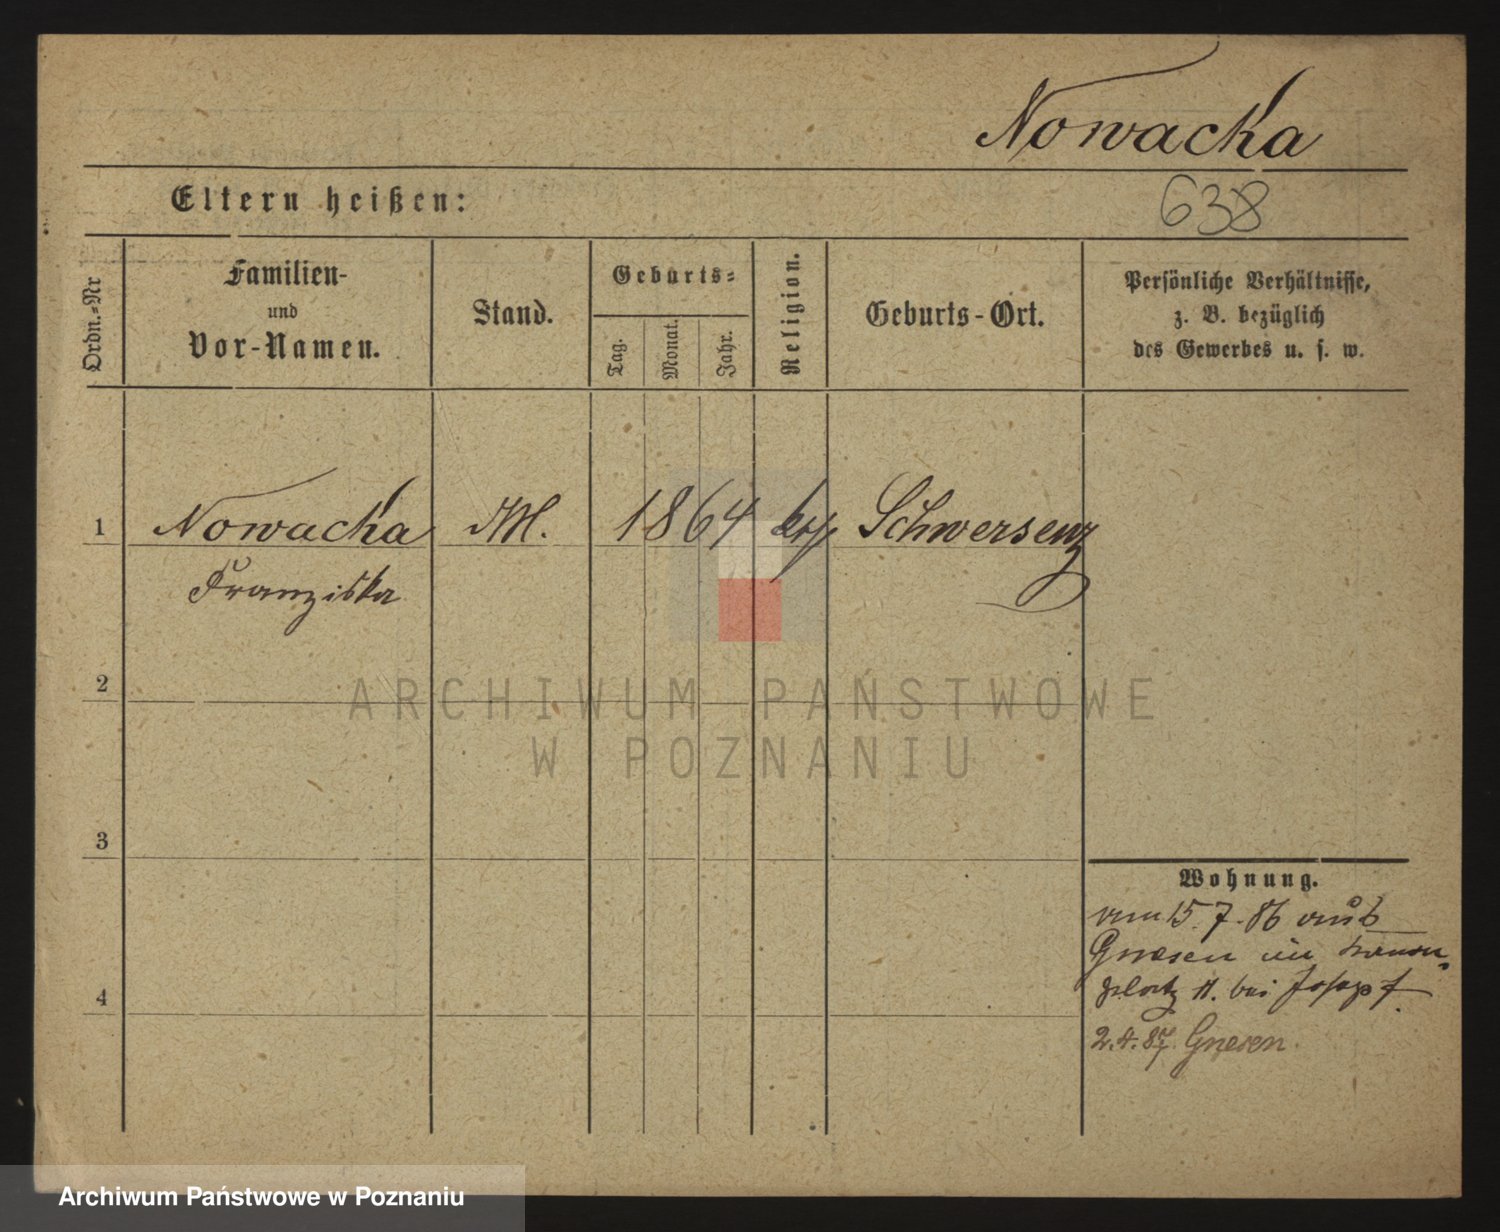 Nowacka
Eltern heißen:
638
Ordn.-Nr
Familien-
und
Vor-Namen.
Stand.
Geburts-
Tag.
Monat.
Jahr.
Religion.
Geburts-Ort.
Persönliche Verhältnisse,
z. B. bezüglich
des Gewerbes u. s. w.
1 Nowacka M. 1864 Schwersenz
Franziska
2
ARCHIWUM PAŃSTWOWE
W POZNANIU
3
Wohnung.
am 15.7.86 aus
Gnesen in Kanon-
platz 11. bei Josepf.
4
2.4.87 Gnesen.
Archiwum Państwowe w Poznaniu